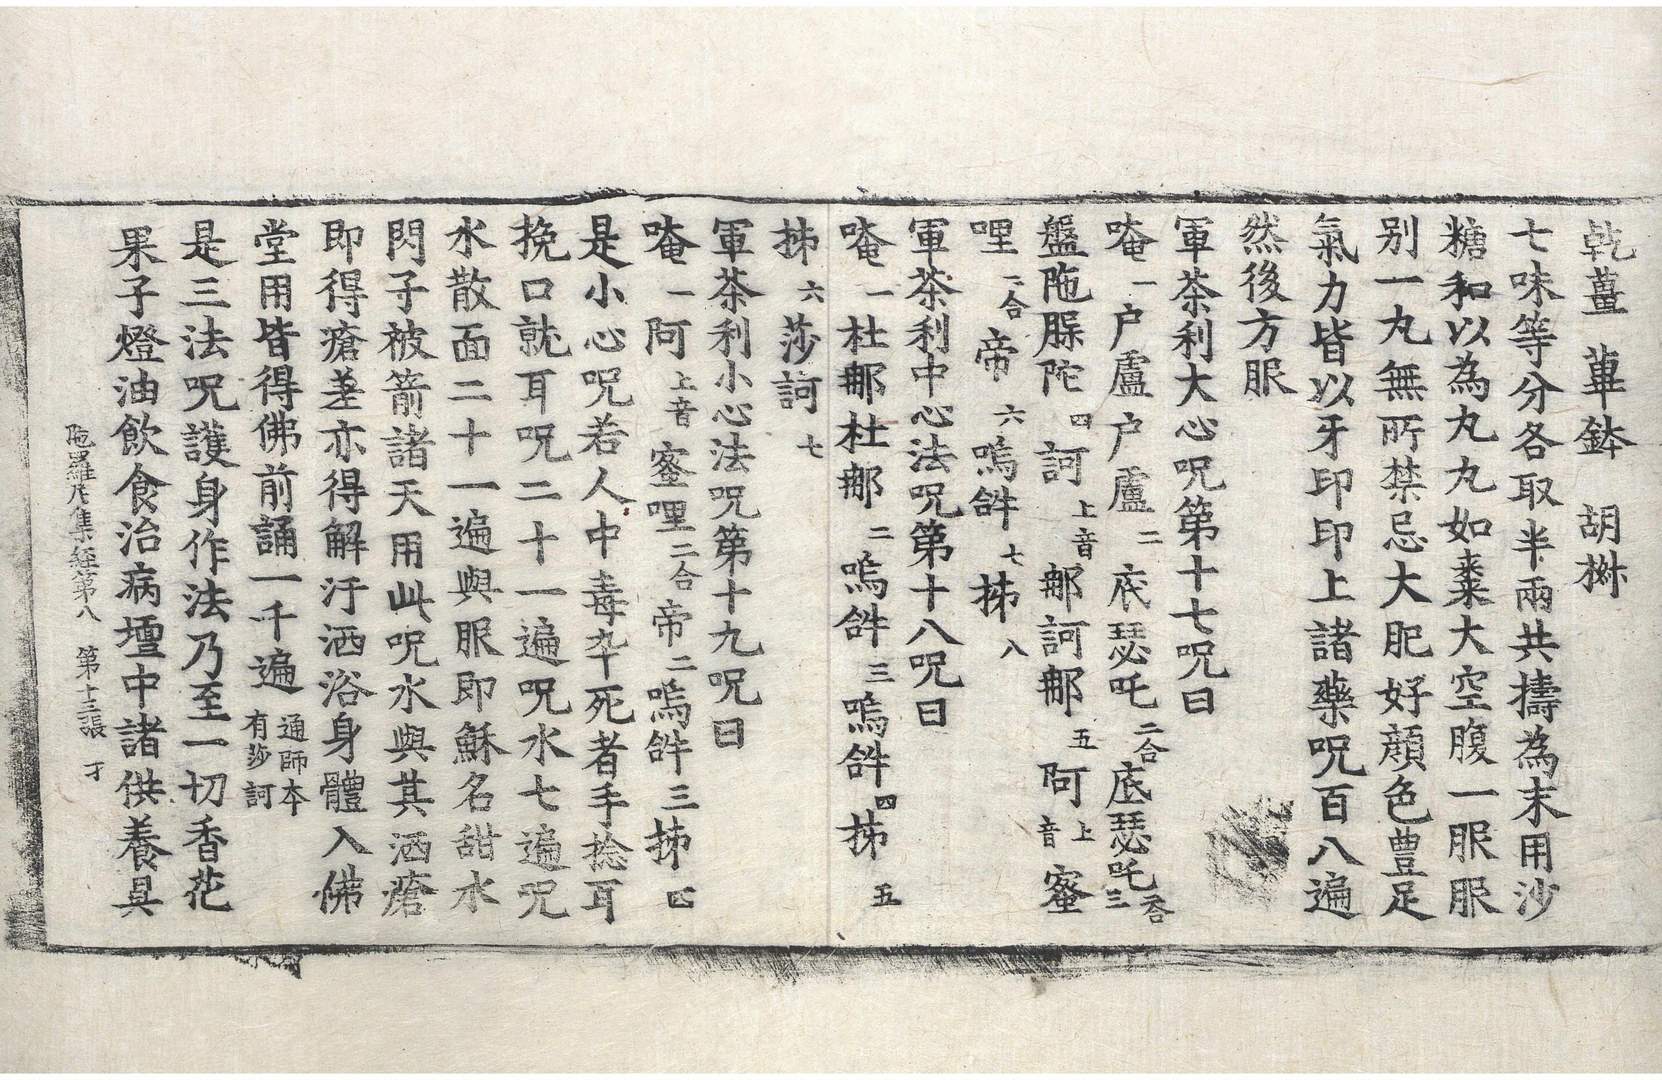 乾薑 蓽鉢 胡椒
七味等分各取半兩共擣為末用沙
糖和以為丸丸如棗大空腹一服服
別一丸無所禁忌大肥好顔色豊足
氣力皆以牙印印上諸藥呪百八遍
然後方服
軍茶利大心呪第十七呪曰
唵一户盧户盧二底瑟吒二合底瑟吒二合三
盤陁陁四訶上音郍訶郍五阿上音蜜
哩二合帝六嗚𤙖七㧊八
軍茶利中心法呪第十八呪曰
唵一杜郍杜郍二嗚𤙖三嗚𤙖四㧊五
㧊六莎訶七
軍茶利小心法呪第十九呪曰
唵一阿上音蜜哩二合帝二嗚𤙖三㧊四
是小心呪若人中毒卒死者手捻耳
挽口就耳呪二十一遍呪水七遍呪
水散面二十一遍與服即穌名甜水
閃子被箭諸天用此呪水與其洒瘡
即得瘡差亦得解汙洒浴身體入佛
堂用皆得佛前誦一千遍通師本有莎訶
是三法呪護身作法乃至一切香花
果子燈油飲食治病壇中諸供養具
陁羅尼集經第八 第十三張 才